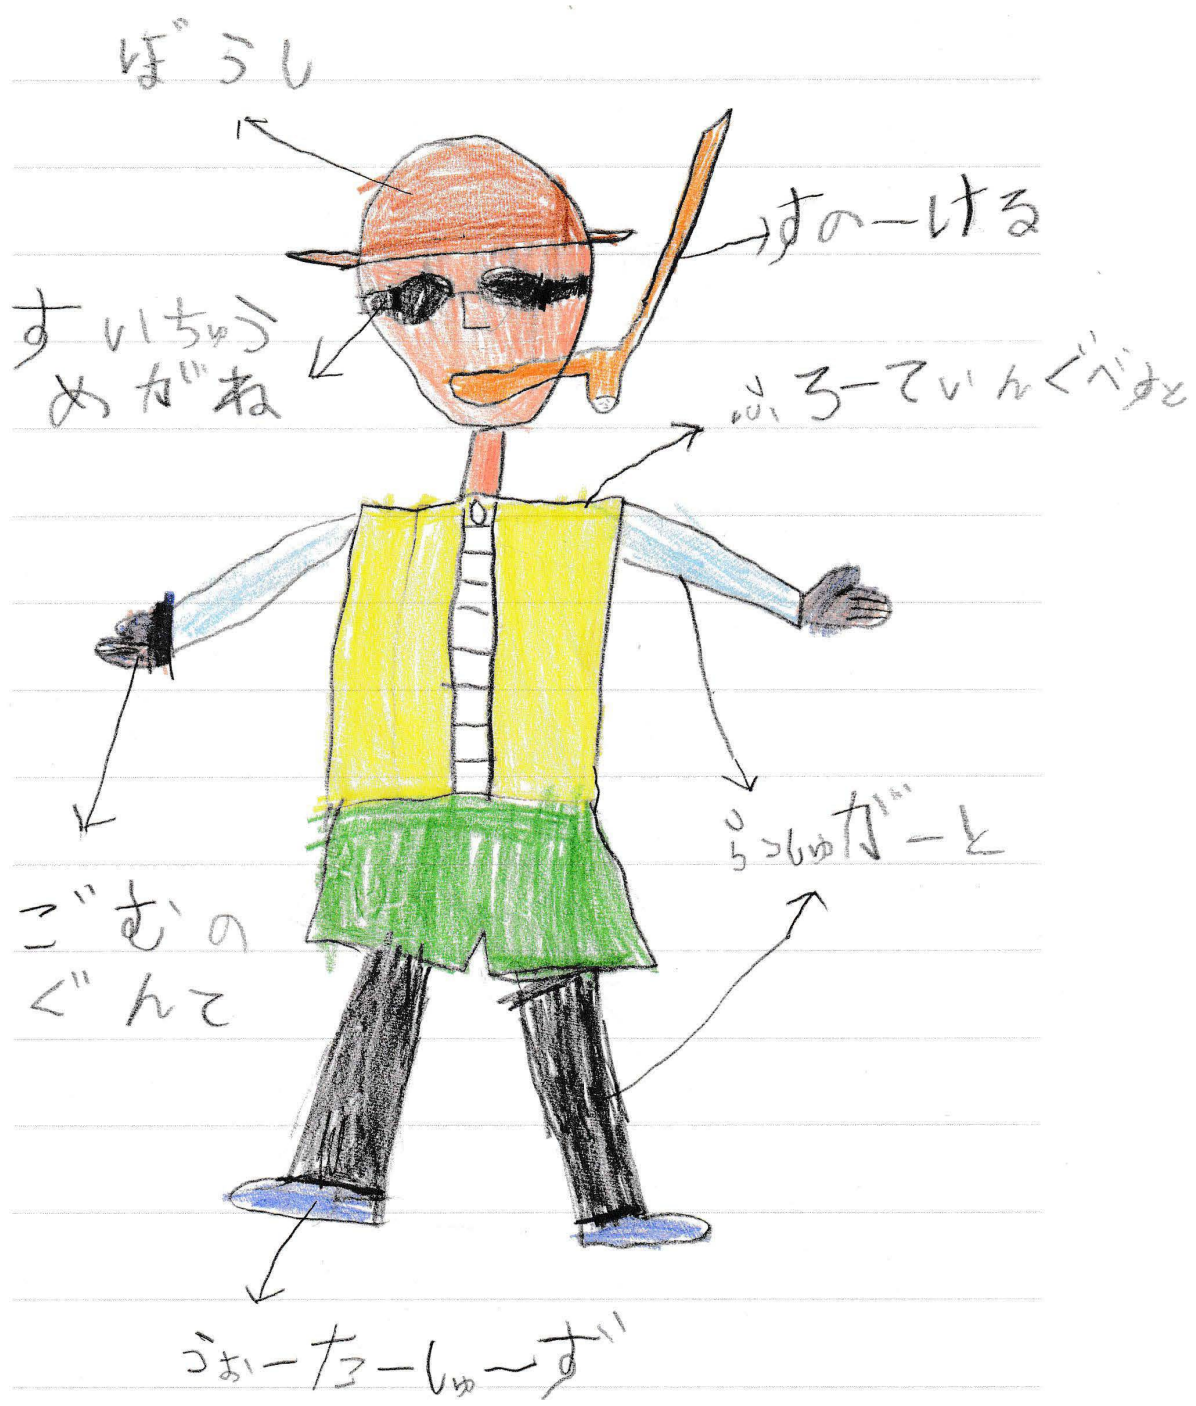 ぼうし
すのーける
すいちゅう
めがね
ふろーてぃんぐべすと
らっしゅがーと
ごむの
ぐんて
うぉーたーしゅーず